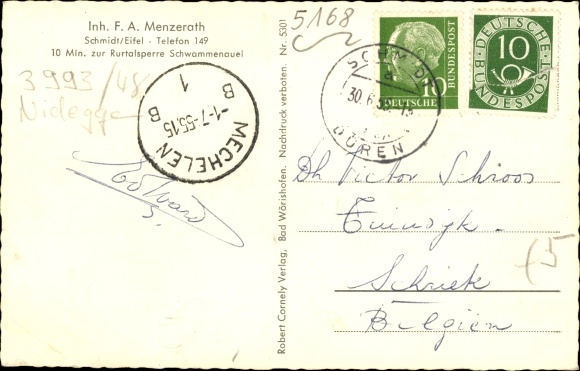 Inh. F. A. Menzerath
Schmidt/Eifel - Telefon 149
10 Min. zur Rurtalsperre Schwammenauel
3993/48
Nidegge
MECHELEN
B 1 B
-1-7-55.15
Edward
S.
Robert Cornely Verlag, Bad Wörishofen. Nachdruck verboten. Nr. 5301
5168
10
DEUTSCHE
BUNDESPOST
DEUTSCHE
BUNDESPOST
10
SCHMIDT
a
30.6.55
DÜREN
Dh Victor Schroos
Tuinwyk.
Schriek
Belgien